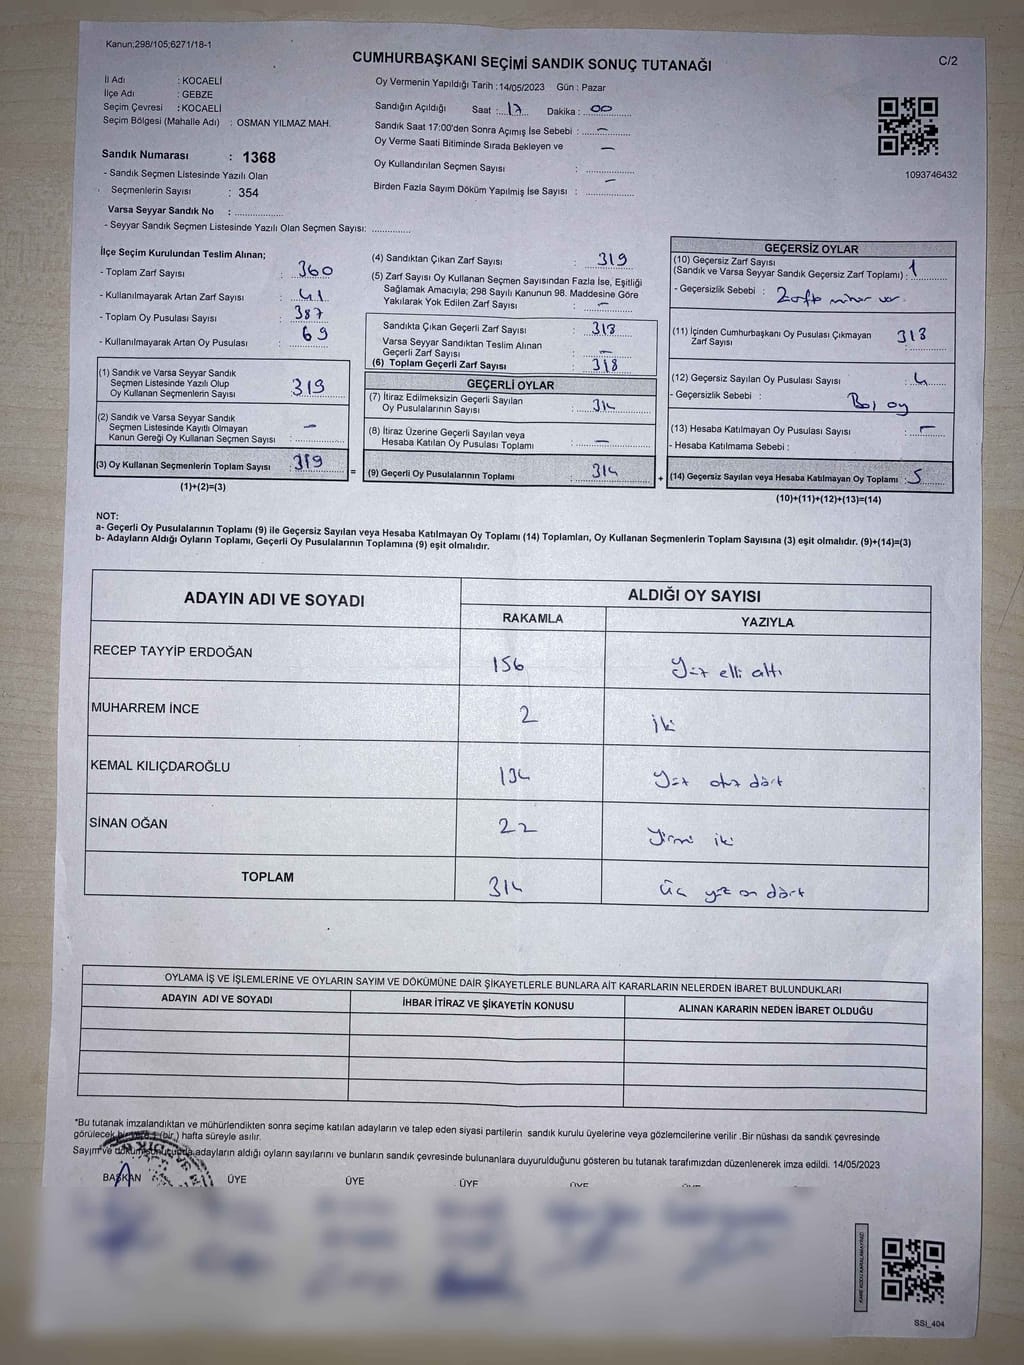 Kanun;298/105;6271/18-1
CUMHURBAŞKANI SEÇİMİ SANDIK SONUÇ TUTANAĞI
C/2
İl Adı : KOCAELİ
İlçe Adı : GEBZE
Seçim Çevresi : KOCAELİ
Seçim Bölgesi (Mahalle Adı) : OSMAN YILMAZ MAH.
Sandık Numarası : 1368
- Sandık Seçmen Listesinde Yazılı Olan
Seçmenlerin Sayısı : 354
Varsa Seyyar Sandık No : ..............
- Seyyar Sandık Seçmen Listesinde Yazılı Olan Seçmen Sayısı: ............
Oy Vermenin Yapıldığı Tarih : 14/05/2023 Gün : Pazar
Sandığın Açıldığı Saat : 17 Dakika : 00
Sandık Saat 17:00'den Sonra Açımış İse Sebebi : —
Oy Verme Saati Bitiminde Sırada Bekleyen ve —
Oy Kullandırılan Seçmen Sayısı :
Birden Fazla Sayım Döküm Yapılmış İse Sayısı : —
1093746432
İlçe Seçim Kurulundan Teslim Alınan;
- Toplam Zarf Sayısı : 360
- Kullanılmayarak Artan Zarf Sayısı : 41
- Toplam Oy Pusulası Sayısı : 387
- Kullanılmayarak Artan Oy Pusulası : 69
(1) Sandık ve Varsa Seyyar Sandık
Seçmen Listesinde Yazılı Olup
Oy Kullanan Seçmenlerin Sayısı : 319
(2) Sandık ve Varsa Seyyar Sandık
Seçmen Listesinde Kayıtlı Olmayan
Kanun Gereği Oy Kullanan Seçmen Sayısı : —
(3) Oy Kullanan Seçmenlerin Toplam Sayısı : 319
(1)+(2)=(3)
=
(4) Sandıktan Çıkan Zarf Sayısı : 319
(5) Zarf Sayısı Oy Kullanan Seçmen Sayısından Fazla İse, Eşitliği
Sağlamak Amacıyla; 298 Sayılı Kanunun 98. Maddesine Göre
Yakılarak Yok Edilen Zarf Sayısı : —
Sandıkta Çıkan Geçerli Zarf Sayısı : 318
Varsa Seyyar Sandıktan Teslim Alınan
Geçerli Zarf Sayısı : —
(6) Toplam Geçerli Zarf Sayısı : 318
GEÇERLİ OYLAR
(7) İtiraz Edilmeksizin Geçerli Sayılan
Oy Pusulalarının Sayısı : 314
(8) İtiraz Üzerine Geçerli Sayılan veya
Hesaba Katılan Oy Pusulası Toplamı : —
(9) Geçerli Oy Pusulalarının Toplamı : 314
+
GEÇERSİZ OYLAR
(10) Geçersiz Zarf Sayısı
(Sandık ve Varsa Seyyar Sandık Geçersiz Zarf Toplamı) : 1
- Geçersizlik Sebebi :
(11) İçinden Cumhurbaşkanı Oy Pusulası Çıkmayan 318
Zarf Sayısı :
(12) Geçersiz Sayılan Oy Pusulası Sayısı : 4
- Geçersizlik Sebebi : Boş oy
(13) Hesaba Katılmayan Oy Pusulası Sayısı : —
- Hesaba Katılmama Sebebi :
(14) Geçersiz Sayılan veya Hesaba Katılmayan Oy Toplamı : 5
(10)+(11)+(12)+(13)=(14)
NOT:
a- Geçerli Oy Pusulalarının Toplamı (9) ile Geçersiz Sayılan veya Hesaba Katılmayan Oy Toplamı (14) Toplamları, Oy Kullanan Seçmenlerin Toplam Sayısına (3) eşit olmalıdır. (9)+(14)=(3)
b- Adayların Aldığı Oyların Toplamı, Geçerli Oy Pusulalarının Toplamına (9) eşit olmalıdır.
ADAYIN ADI VE SOYADI
ALDIĞI OY SAYISI
RAKAMLA YAZIYLA
RECEP TAYYİP ERDOĞAN 156 Yüz elli altı
MUHARREM İNCE 2 iki
KEMAL KILIÇDAROĞLU 134 Yüz otuz dört
SİNAN OĞAN 22 Yirmi iki
TOPLAM 314 Üç yüz on dört
OYLAMA İŞ VE İŞLEMLERİNE VE OYLARIN SAYIM VE DÖKÜMÜNE DAİR ŞİKAYETLERLE BUNLARA AİT KARARLARIN NELERDEN İBARET BULUNDUKLARI
ADAYIN ADI VE SOYADI İHBAR İTİRAZ VE ŞİKAYETİN KONUSU ALINAN KARARIN NEDEN İBARET OLDUĞU
*Bu tutanak imzalandıktan ve mühürlendikten sonra seçime katılan adayların ve talep eden siyasi partilerin sandık kurulu üyelerine veya gözlemcilerine verilir .Bir nüshası da sandık çevresinde
görülecek bir yere 1 (bir) hafta süreyle asılır.
Sayım ve döküm sonucunda adayların aldığı oyların sayılarını ve bunların sandık çevresinde bulunanlara duyurulduğunu gösteren bu tutanak tarafımızdan düzenlenerek imza edildi. 14/05/2023
BAŞKAN ÜYE ÜYE ÜYE ÜYE
SSi_404